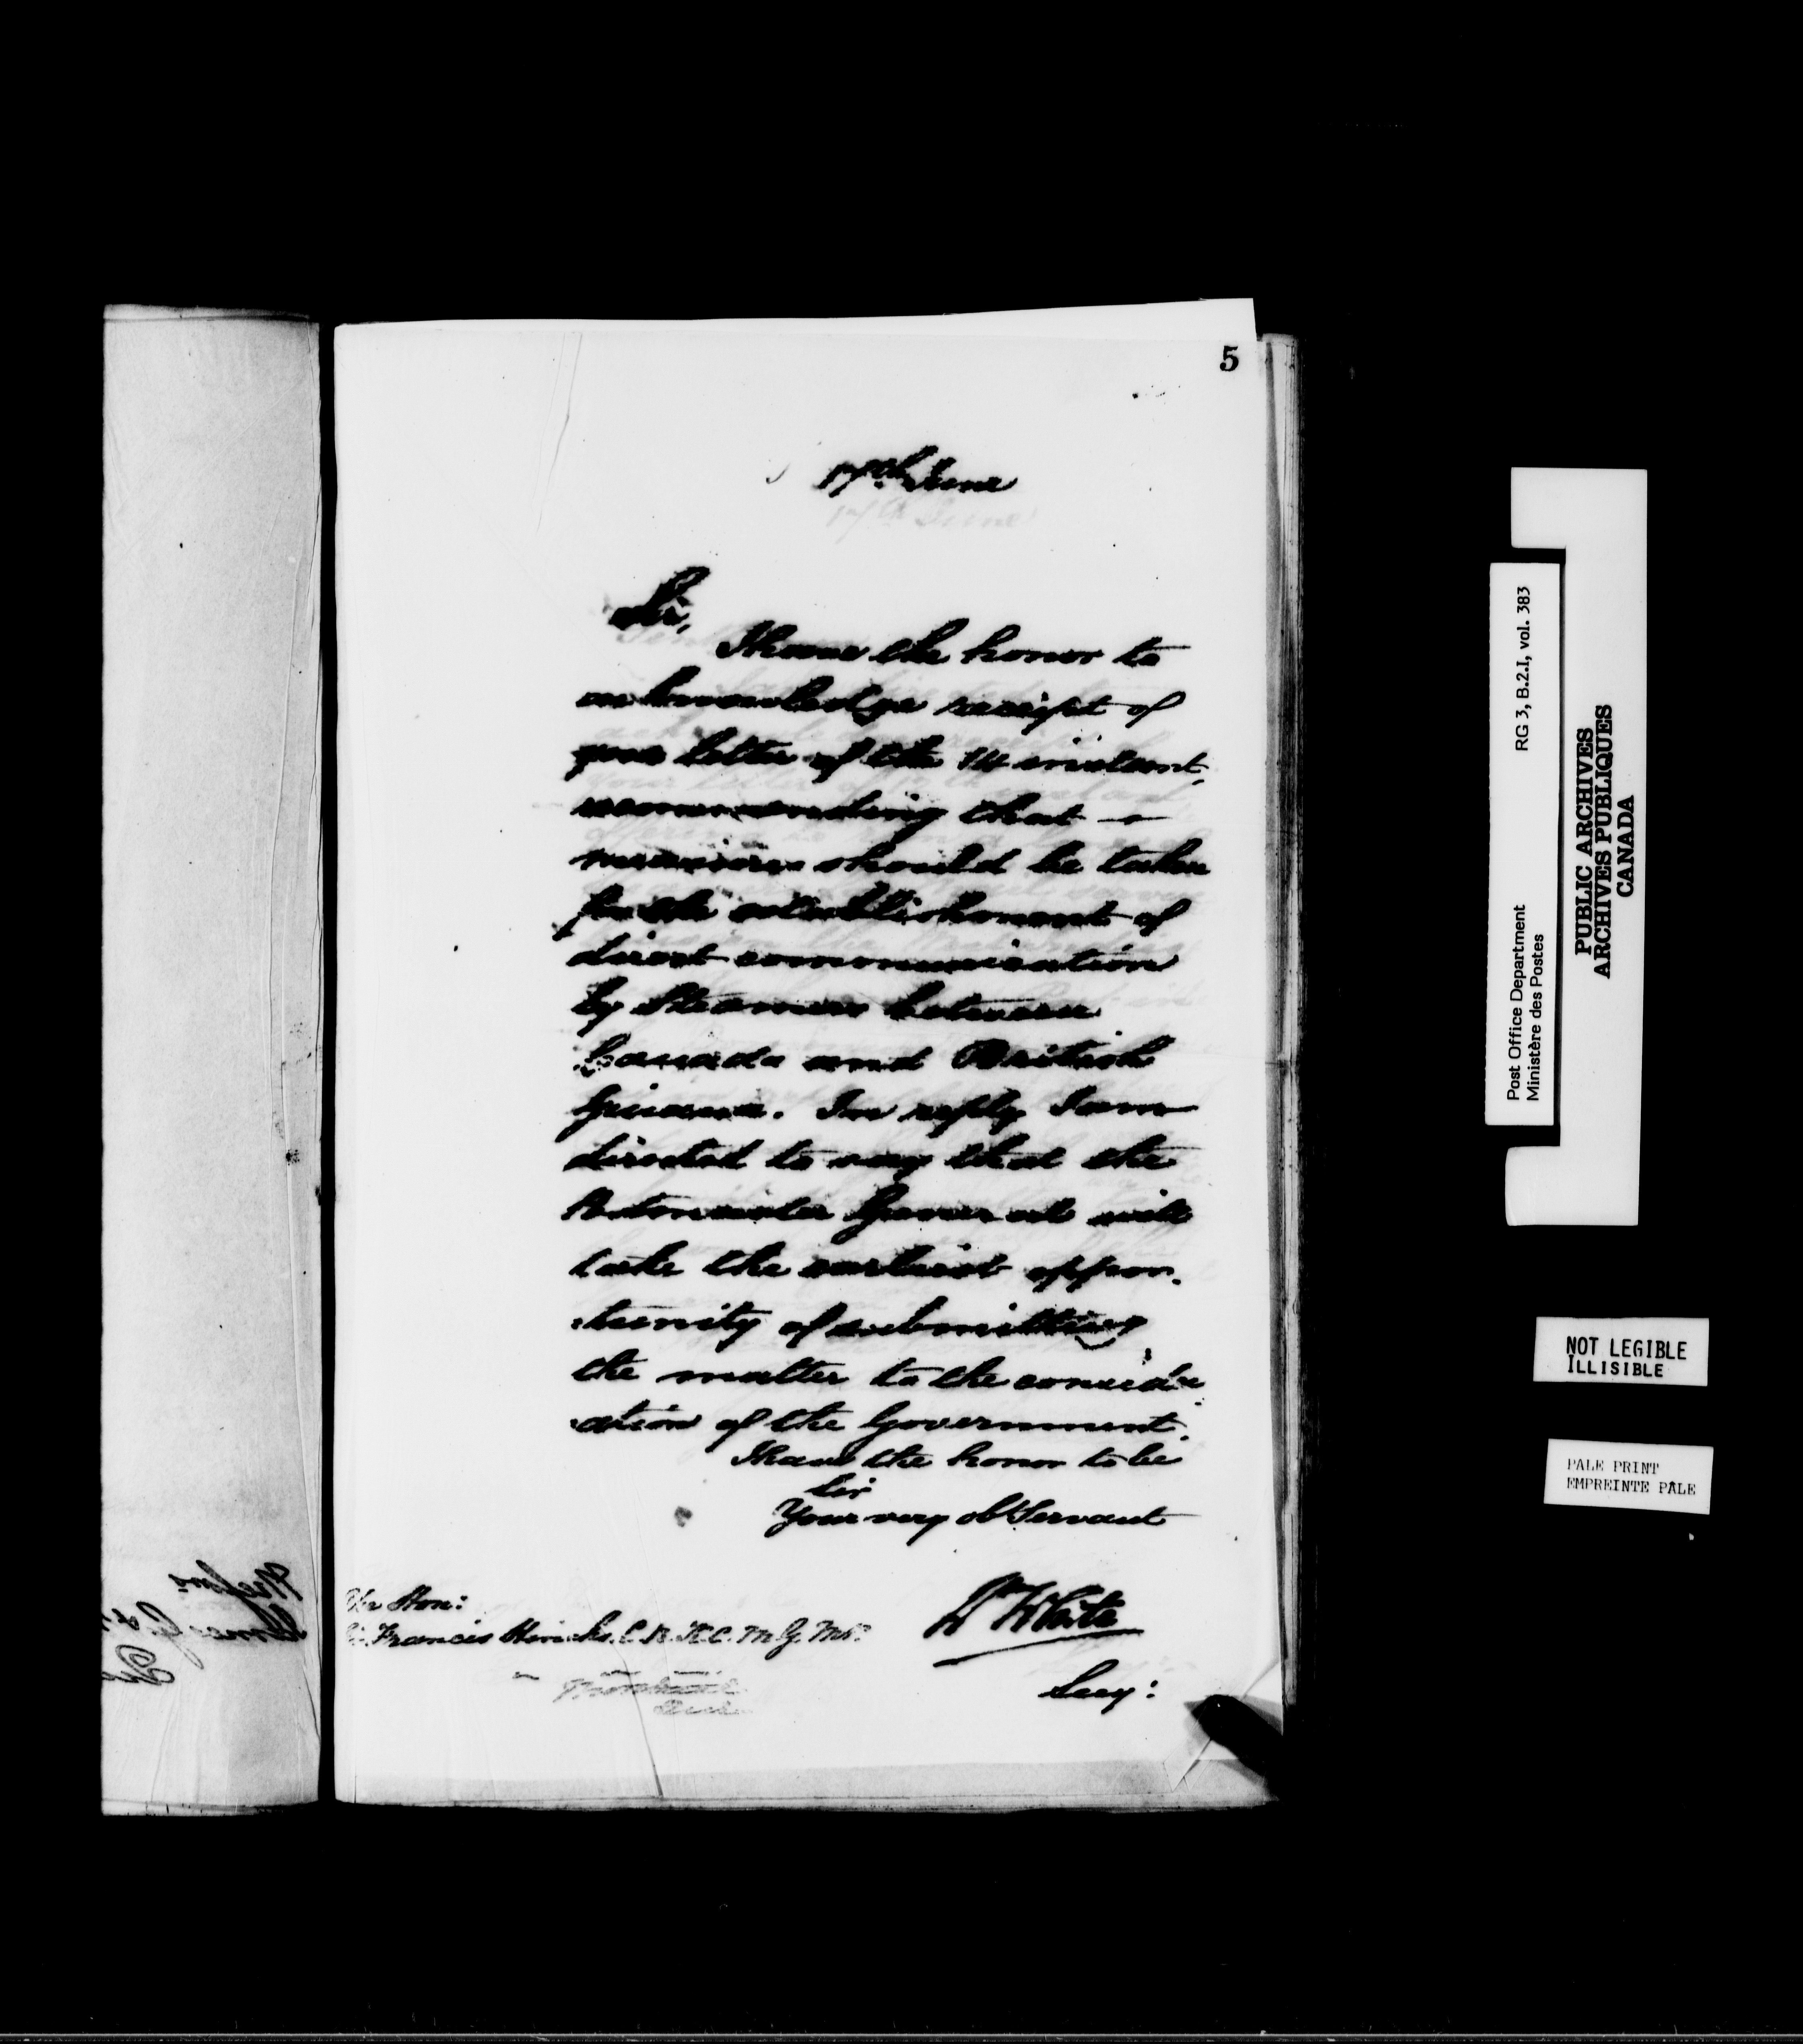 5
17th June
Sir,
I have the honor to
acknowledge receipt of
your letter of the 14 instant,
recommending that
measures should be taken
for the establishment of
direct communication
by Steamers between
Canada and British
Guiana. In reply I am
directed to say that the
Postmaster General will
take the earliest oppor-
:tunity of submitting
the matter to the consider
:ation of the Government.
I have the honor to be
Sir
Your very ob Servant
The Hon:
Sir Francis Hincks. C.B. K.C.M.G.
W White
Secy:
Montreal
Post Office Department RG 3, B.2.I, vol. 383
Ministère des Postes
PUBLIC ARCHIVES
ARCHIVES PUBLIQUES
CANADA
NOT LEGIBLE
ILLISIBLE
PALE PRINT
EMPREINTE PÂLE